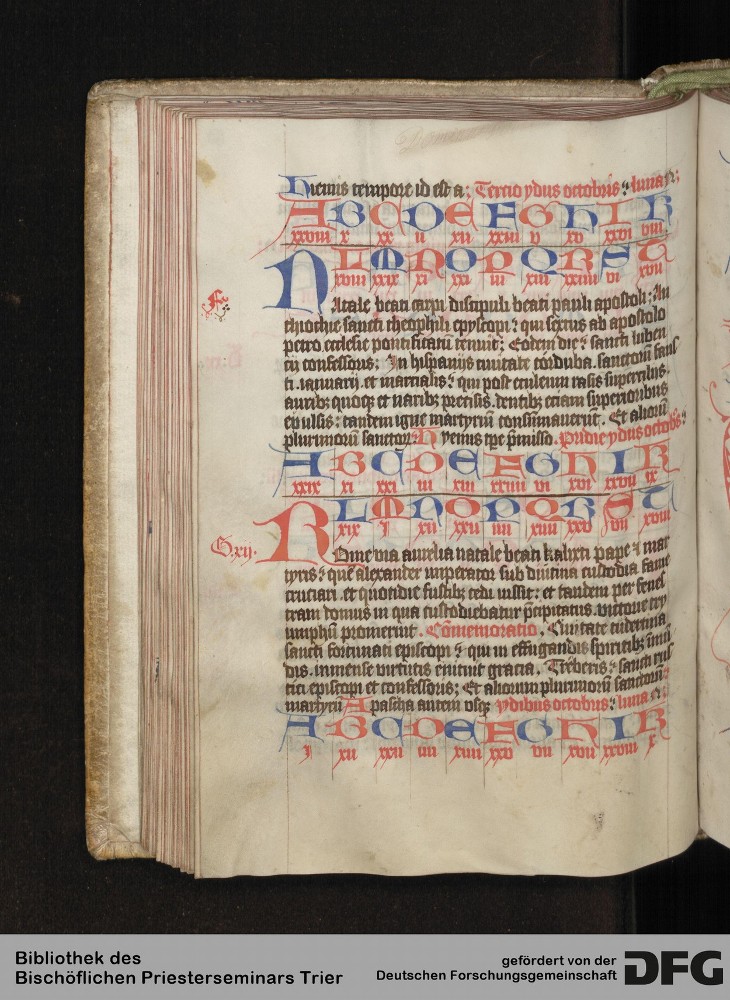 Hiemis tempore id est a; Tercio ydus octobris : luna
A B C D E F G H I K
xxviii x xx ii xii xxiii v xv xxvi viii
L M N O P Q R S T
xviii xxix xi xxi iii xiii xxiiii vi xvii
F
NAtale beati carpi discipuli beati pauli apostoli : An
thiochie sancti theophili epyscopi : qui sextus ab apostolo
petro ecclesie pontificatū tenuit; Eodem die : sancti luben
cii confessoris; In hispanijs ciuitate corduba. sanctorū faus
ti. ianuarij. et marcialis : qui post eculeum rasis supercilijs.
auribꝫ quoqꝫ et naribꝫ precisis. dentibꝫ eciam superioribus
euulsis : tandem igne martyriū consūmauerūt. Et alioꝝ
plurimorū sanctoꝝ. H yemis tꝑe p̄misso. Pridie ydus octobr̄s :
A B C D E F G H I K
xxix xi xxi iii xiii xxiiii vi xvi xxvii ix
L M N O P Q R S T
xix i xii xxii iiii xiiii xxv vii xviii
G. xij.
ROme via aurelia natale beati kalixti pape ⁊ mar
tyris : quē alexander imperator sub diutina custodia fame
cruciari. et quotidie fustibꝫ cedi iussit : et tandem per fenes
tram domus in qua custodiebatur p̄cipitatus. victorie try
umphū promeruit. Cōmemoratio. Ciuitate tudertina
sancti fortunati episcopi : qui in effugandis spiritibꝫ īmū
dis. inmense virtutis enituit gracia. Treberis : sancti rus
tici episcopi et confessoris; Et aliorum plurimorū sanctorū
martyrū A pascha autem vsqꝫ ydibus octobris : luna
A B C D E F G H I K
i xii xxii iiii xiiii xxv vii xvii xxviii x
Bibliothek des
Bischöflichen Priesterseminars Trier
gefördert von der
Deutschen Forschungsgemeinschaft
DFG